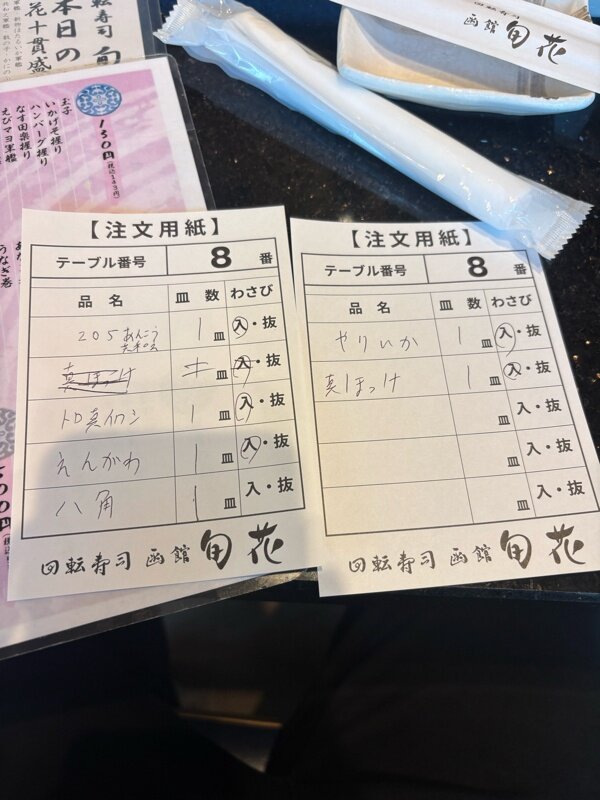 本日の
花十貫盛
130円(税込143円)
玉子
いかげそ握り
ハンバーグ握り
なす田楽握り
えびマヨ軍艦
うなぎ巻
函館 旬花
【注文用紙】
テーブル番号 8 番
品名 皿数 わさび
205 あんこう共和え 1皿 入・抜
真ほっけ 皿 入・抜
トロ真イワシ 1皿 入・抜
えんがわ 1皿 入・抜
八角 1皿 入・抜
回転寿司 函館 旬花
【注文用紙】
テーブル番号 8 番
品名 皿数 わさび
やりいか 1皿 入・抜
真ほっけ 1皿 入・抜
皿 入・抜
皿 入・抜
皿 入・抜
回転寿司 函館 旬花